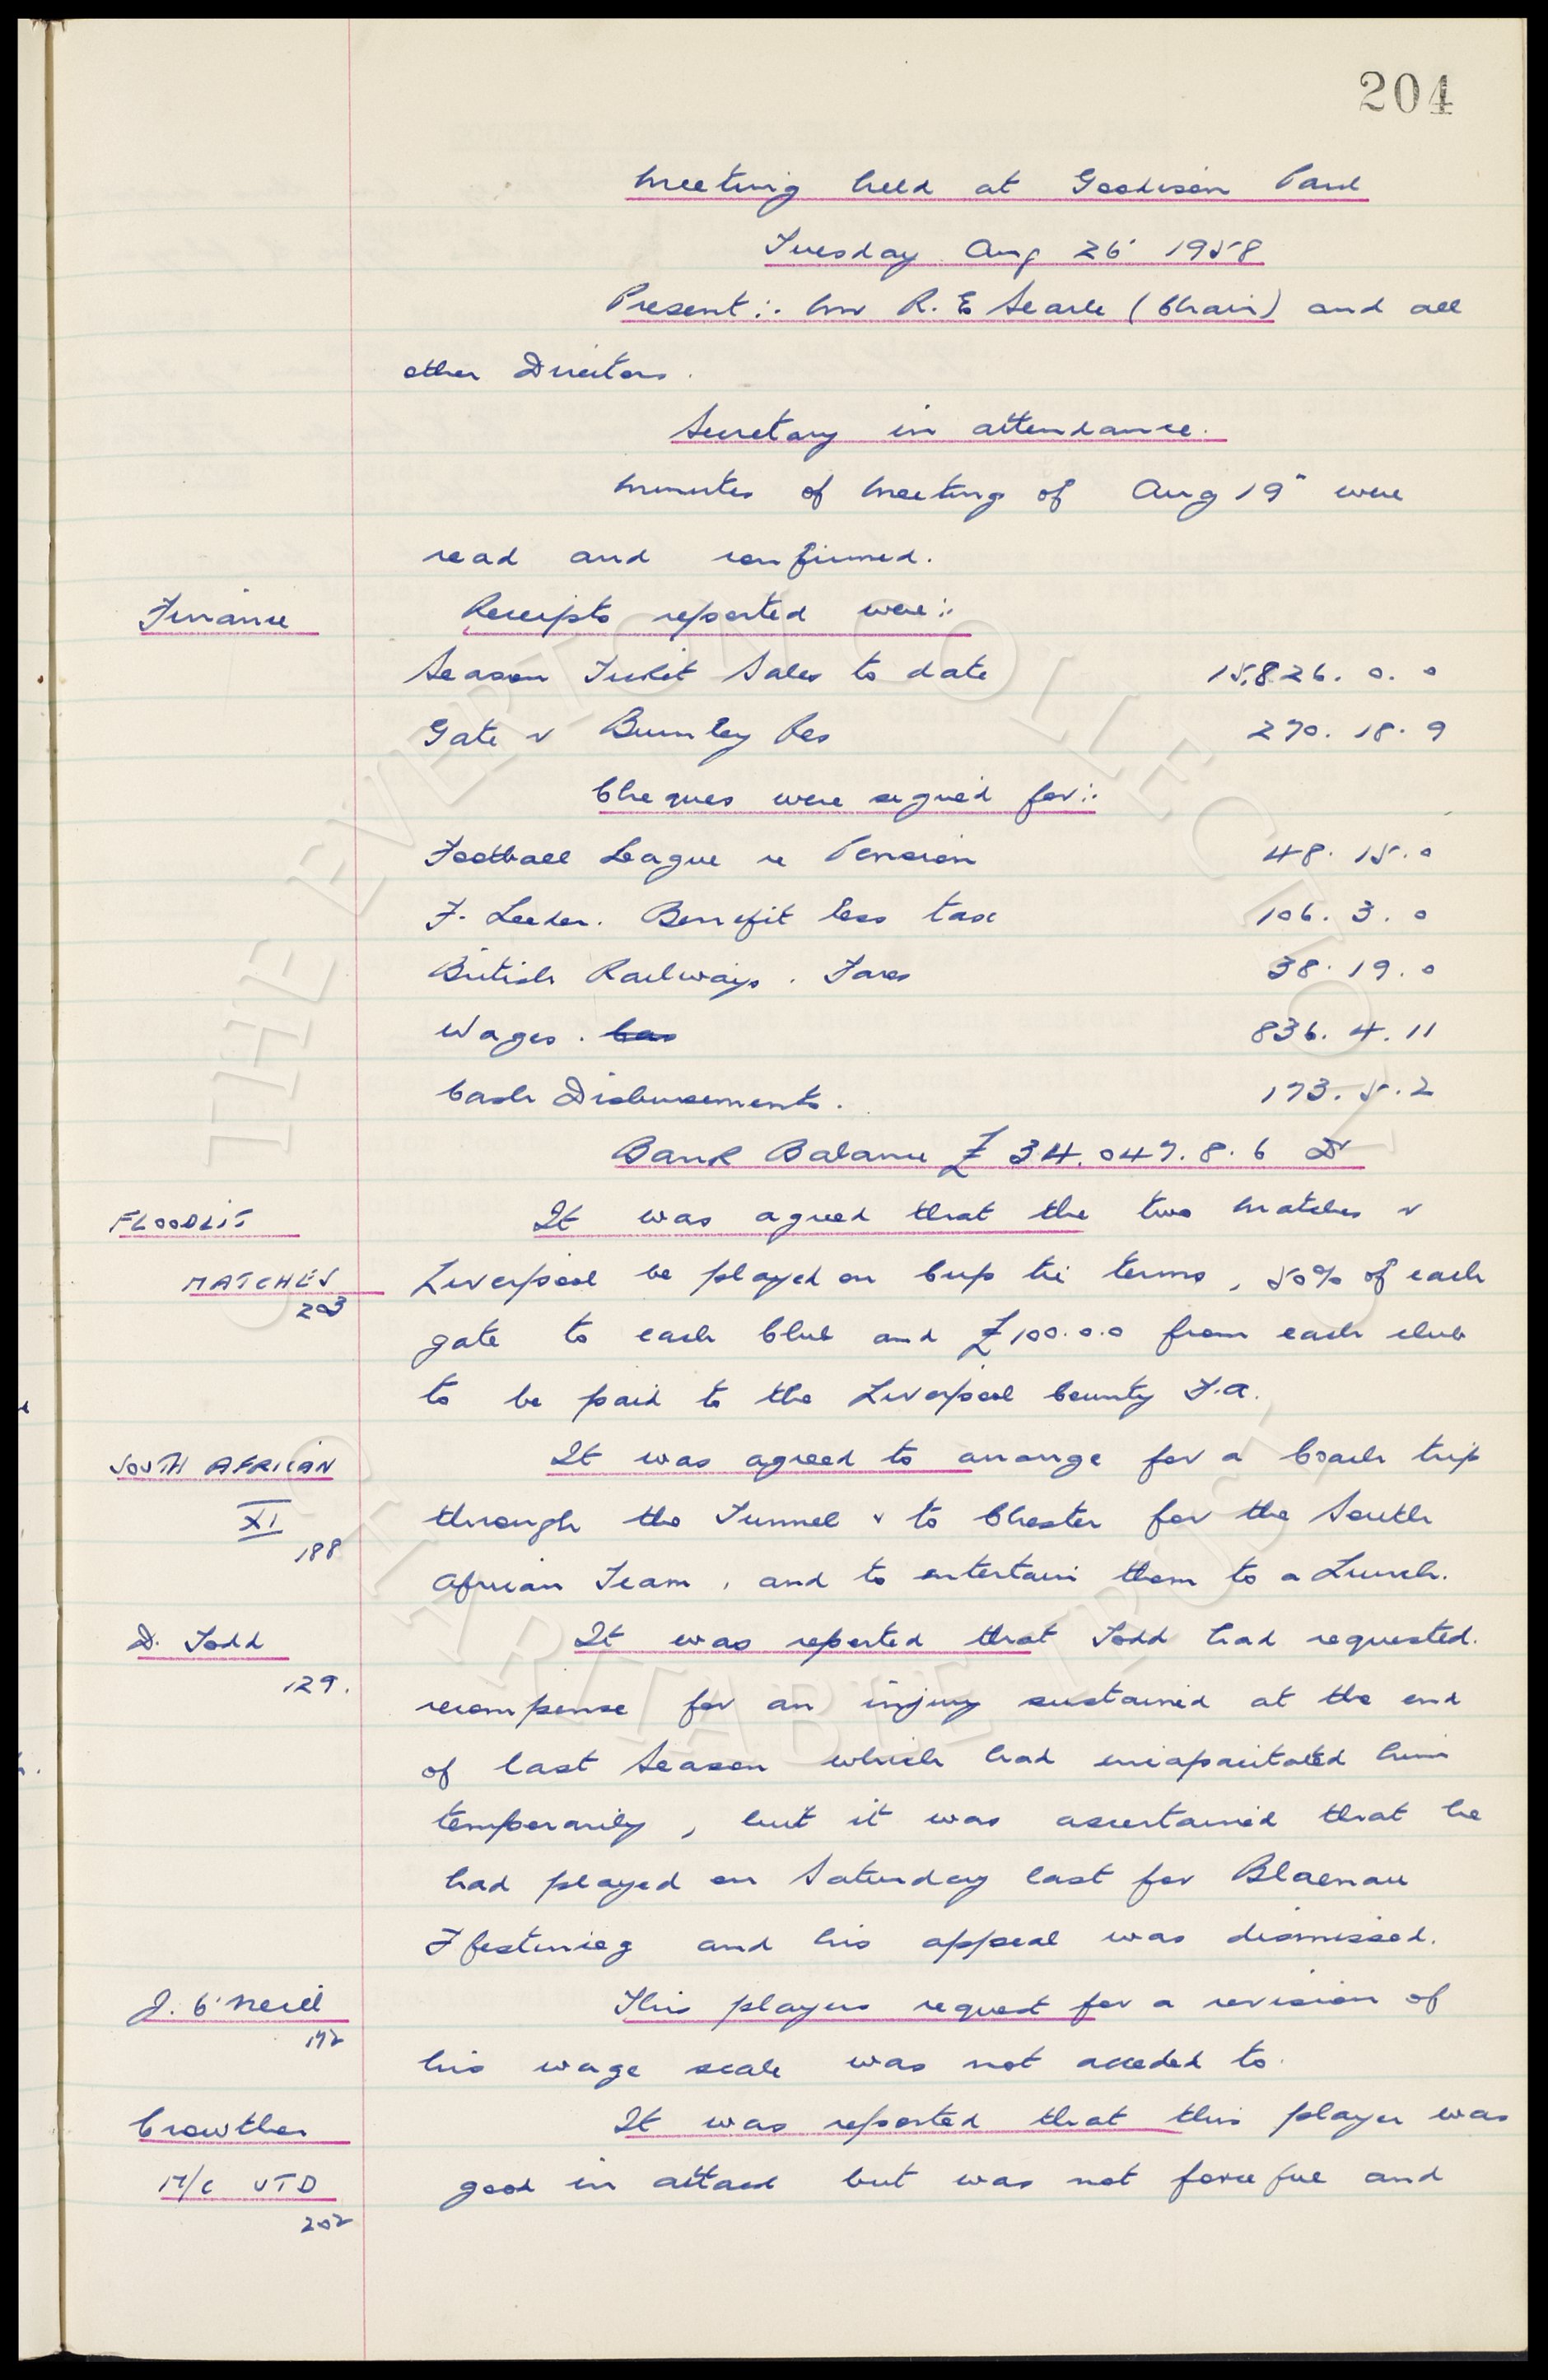 204
Meeting held at Goodison Park
Tuesday Aug 26" 1958
Present:. Mr R. E Searle (Chair) and all
other Directors.
Secretary in attendance.
Minutes of Meeting of Aug 19" were
read and confirmed.
Finance
Receipts reported were:.
Season Ticket Sales to date 15,826. 0. 0
Gate v Burnley Res 270. 18. 9
Cheques were signed for:.
Football League re Pension 48. 15. 0
F. Leeder. Benefit less tax 106. 3. 0
British Railways. Fares 38. 19. 0
Wages. Cas 836. 4. 11
Cash Disbursements. 173. 5. 2
Bank Balance £34.047. 8. 6 Dr
FLOODLIT
It was agreed that the two Matches v
MATCHES
Liverpool be played on Cup tie terms, 50% of each
203
gate to each Club and £100.0.0 from each club
to be paid to the Liverpool County F.A.
SOUTH AFRICAN
It was agreed to arrange for a Coach trip
XI
through the Tunnel & to Chester for the South
188
African Team, and to entertain them to a Lunch.
D. Todd
It was reported that Todd had requested.
129.
recompense for an injury sustained at the end
of last Season which had incapacitated him
temporarily, but it was ascertained that he
had played on Saturday last for Blaenau
Ffestiniog and his appeal was dismissed.
J. O'Neill
This players request for a revision of
192
his wage scale was not acceded to.
Crowther
It was reported that this player was
M/C UTD
good in attack but was not forceful and
202
THE EVERTON COLLECTION
CHARITABLE TRUST